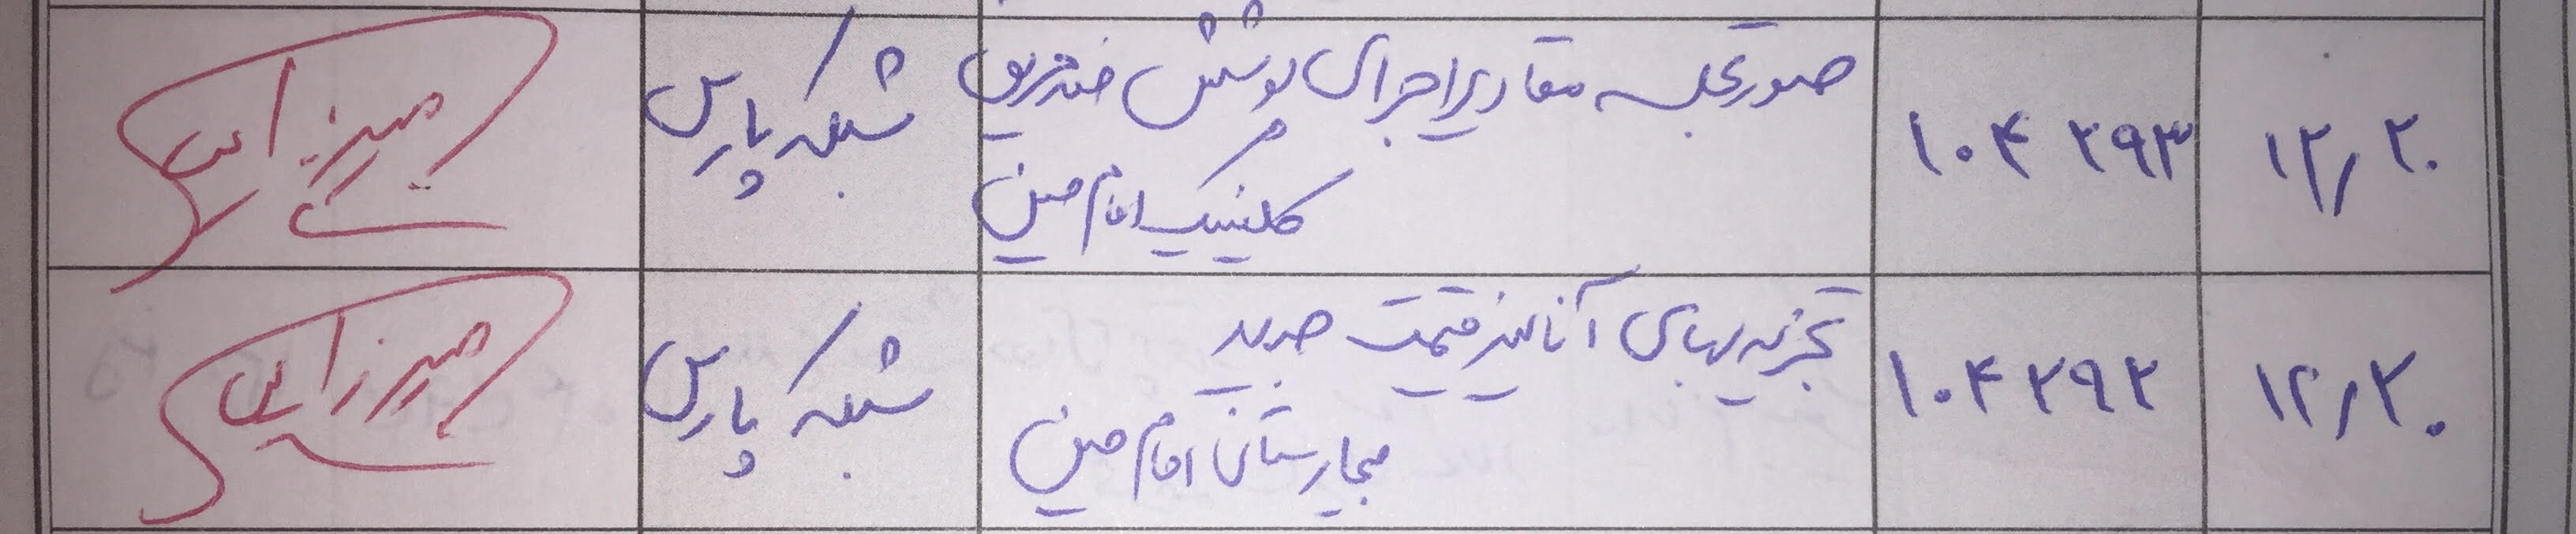 ۱۲/۲۰
۱۰۴۲۹۳
صورتجلسه مقادیر اجرای پوشش ضد حریق
کلینیک امام حسن
شبکه پارس
میرزایی
۱۲/۲۰
۱۰۴۲۹۲
تجزیه بهای آنالیز قیمت جدید
بیمارستان امام حسن
شبکه پارس
میرزایی